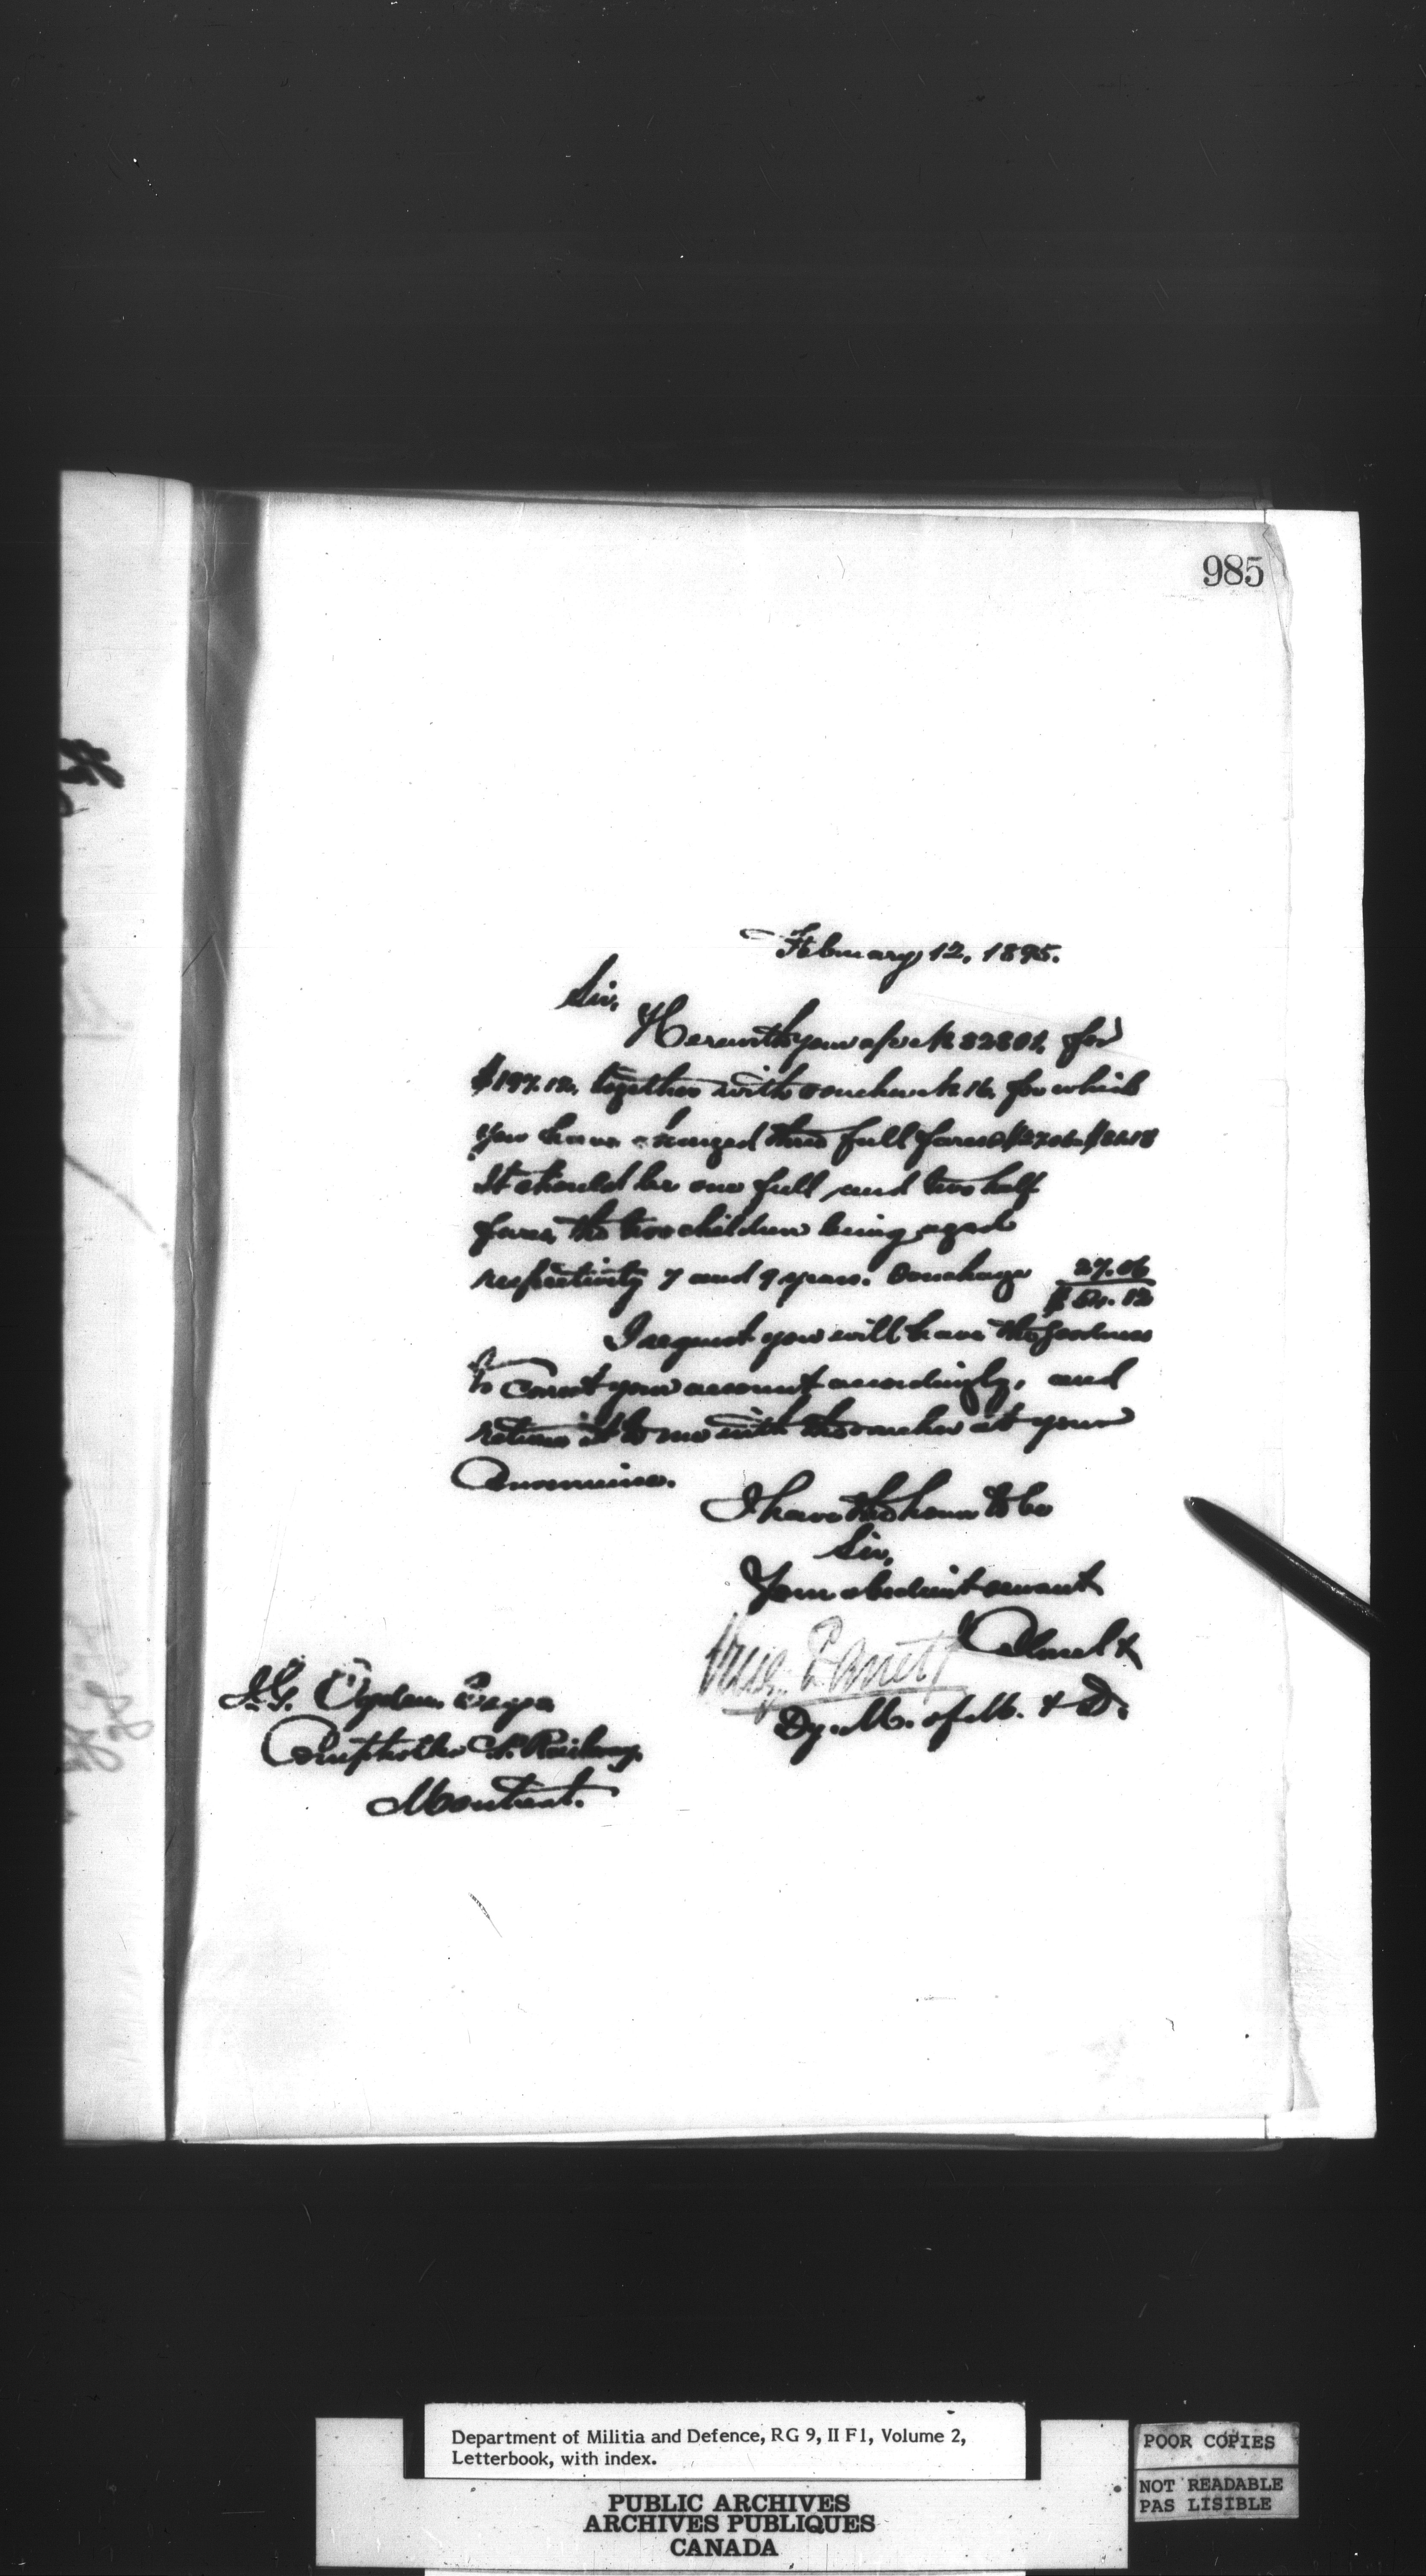 985
February 12, 1895.
Sir,
Herewith your a/c No 82801. for
$197.12. together with voucher No 16. for which
you have charged three full fares @ $27.06 $81.18
It should be one full and two half
fares, the two children being aged
respectively 7 and 9 years. Overcharge 27.06
$54.12
I request you will have the goodness
to correct your account accordingly, and
return it to me with the voucher at your
convenience.
I have the honor to be
Sir,
Your obedient servant
Colonel
Dy. M. of M. & D.
I.G. Ogden Esqre
Comptroller Railway
Montreal.
Department of Militia and Defence, RG 9, II F1, Volume 2,
Letterbook, with index.
PUBLIC ARCHIVES
ARCHIVES PUBLIQUES
CANADA
POOR COPIES
NOT READABLE
PAS LISIBLE